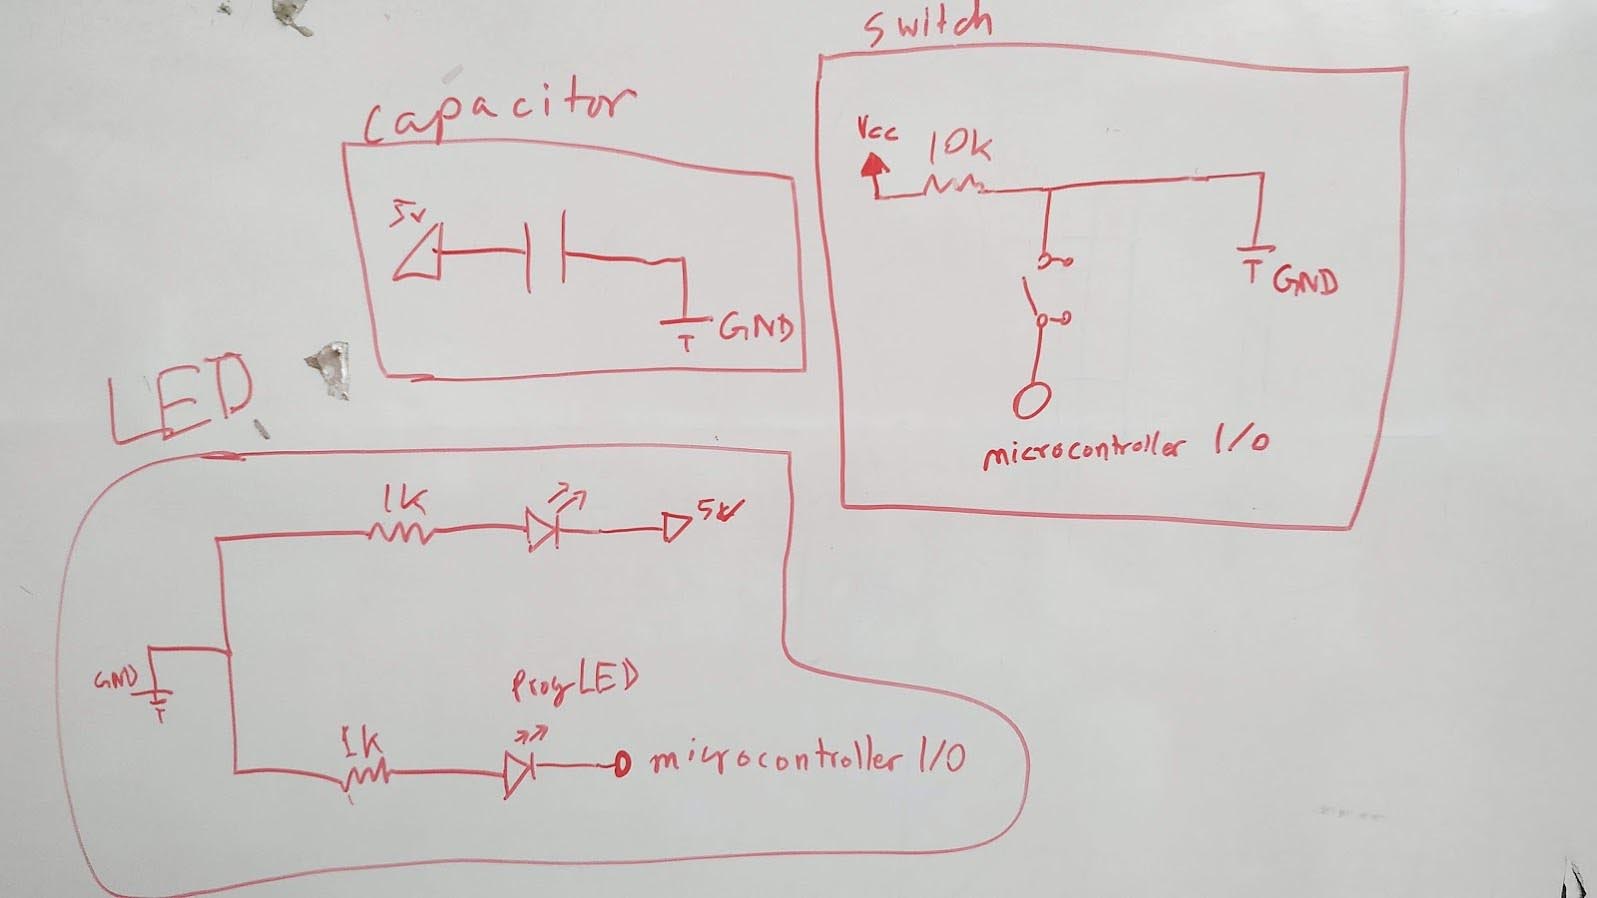 Switch
Capacitor
Vcc
10k
5v
GND
GND
microcontroller I/O
LED
1k
5v
GND
Prog LED
1k
microcontroller I/O